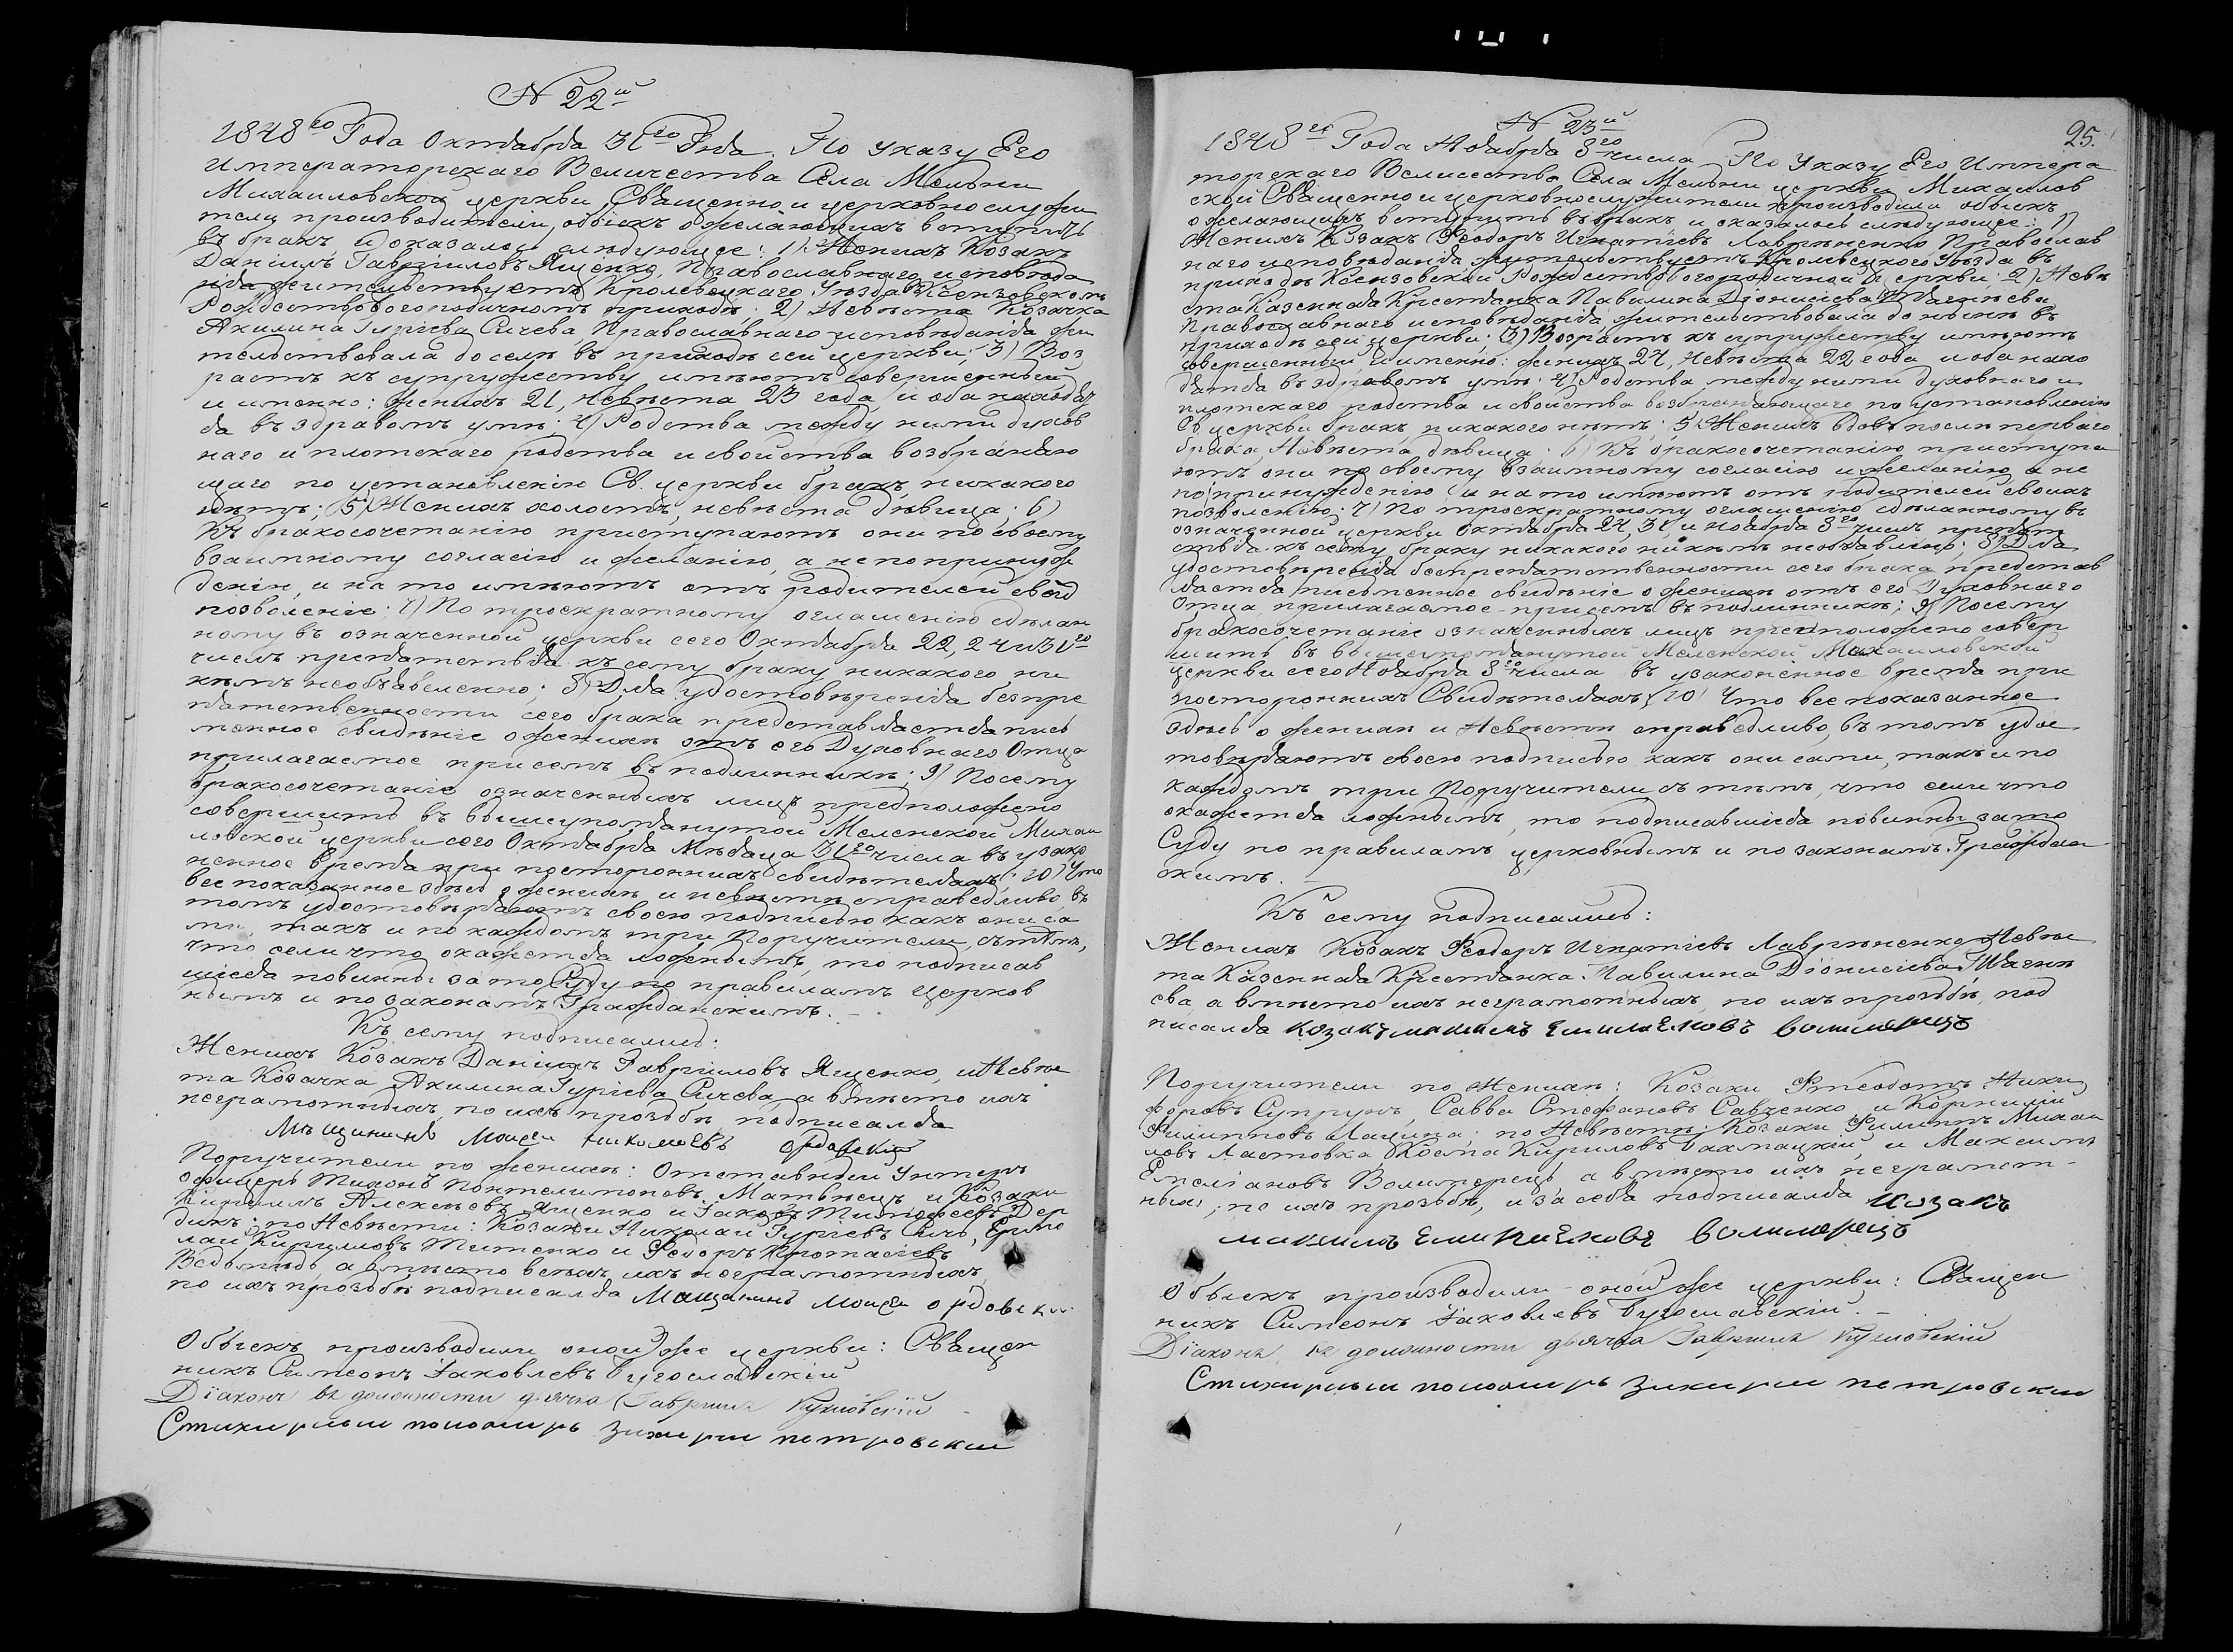 N 22й
1848го Года Октября 31го Дня. По указу Его
Императорскаго Величества Села Мельни
Михаиловской церкви Священно и церковнослужи
тели производители, обыскъ о желающихъ вступить
въ бракъ, и оказалось слѣдующее: 1) Женихъ Козакъ
Даніилъ Гавріиловъ Ященко, Православнаго исповѣда
нія жительствуетъ Кролевецкаго Уѣзда въ Ксензовскомъ
Рождествобогородичномъ приходѣ; 2) Невѣста Козачка
Акилина Гуріева Сичева, Православнаго исповѣданія жи
тельствовала доселѣ въ приходѣ сей церкви; 3) Воз
растъ къ супружеству имѣютъ совершенный
и именно: женихъ 21, Невѣста 23 года, и оба находят
ся въ здравомъ умѣ; 4) Родства между ними духов
наго и плотскаго родства и свойства возбраняю
щаго по установленію Св. церкви бракъ, никакого
нѣтъ; 5) Женихъ холостъ, невѣста дѣвица; 6)
Къ бракосочетанію приступаютъ они по своему
взаимному согласію и желанію, а не по принуж
денію, и на то имѣютъ отъ родителей своихъ
позволеніе; 7) По троекратному оглашенію сдѣлан
ному въ означенной церкви сего Октября 22, 24 и 31го
числъ препятствія къ сему браку никакого ни
кѣмъ необъявленно; 8) Для удостовѣренія безпре
пятственности сего брака представляется пись
менное свидѣніе о женихѣ отъ его Духовнаго Отца
прилагаемое при семъ въ подлинникѣ; 9) Посему
бракосочетаніе означенныхъ лицъ предположено
совершить въ вышеупомянутой Меленской Михаи
ловской церкви сего Октября Мѣсяца 31го числа въ узако
ненное время при постороннихъ свидѣтеляхъ; 10) Что
все показанное здѣсь о женихѣ и невѣстѣ справедливо, въ
томъ удостовѣряютъ своею подписью какъ они са
ми, такъ и по каждомъ три Поручители, съ тѣмъ,
что если что окажется ложнымъ, то подписав
шіеся повинны за то Суду по правиламъ церков
нымъ и по законамъ Гражданскимъ.
Къ сему подписались:
Женихъ Козакъ Даніилъ Гавріиловъ Ященко, и Невѣс
та Козачка Акилина Гуріева Сичева, а вмѣсто ихъ
неграмотныхъ, по ихъ прозьбѣ подписался
Мѣщининъ Моисей Николаевъ Ордовскій
Поручители по женихѣ: Отставный Унтеръ
офицеръ Тихонъ Понтелимоновъ Матвѣецъ, и Козаки
Кириллъ Алексѣевъ Ященко и Іаковъ Тимофеевъ Дер
дикъ; по Невѣсти: Козаки Николай Гуріевъ Сичъ, Ермо
лай Кирилловъ Титенко и Федоръ Протасіевъ
а вмѣсто всѣхъ ихъ неграмотныхъ,
по ихъ прозьбѣ подписался Мещанинъ Моисей Ордовскій
Обыскъ производили оной же церкви: Священ
никъ Симеонъ Іаковлевъ Бугославскій
Діаконъ въ должности дьячка Гавріилъ
Стихирный пономарь Захарій Петровскій
N 23й
25.
1848го Года Ноября 8го числа По Указу Его Импера
торскаго Величества Села Мельни церкви Михаилов
ской Священно и церковнослужители производили обыскъ
о желающихъ вступить въ бракъ, и оказалось слѣдующее: 1)
Женихъ Козакъ Феодоръ Игнатіевъ Лаврѣненко Православ
наго исповѣданія, жительствуетъ Кролевецкого Уѣзда въ
приходѣ Ксензовской Рождествобогородичной церкви; 2) Невѣ
ста Казенная Крестьянка Павилина Діонисіева Шагѣнева
Православнаго исповѣданія, жительствовала до нынѣ въ
приходѣ сей церкви; 3) Возрастъ къ супружеству имѣютъ
совершенный, и именно: женихъ 24, Невѣста 22 года и оба нахо
дятся въ здравомъ умѣ; 4) Родства между ними духовнаго и
плотскаго родства и свойства возбраняющаго по установленію
Св. церкви бракъ, никакого нѣтъ; 5) Женихъ вдовъ послѣ перваго
брака, Невѣста дѣвица; 6) Къ бракосочетанію приступа
ютъ они по своему взаимному согласію и желанію, а не
по принужденію, и на то имѣютъ отъ родителей своихъ
позволеніе; 7) По троекратному оглашенію сдѣланному въ
означенной церкви Октября 24, 31, и Ноября 8го числъ препят
ствія къ сему браку никакого никѣмъ необъявлено; 8) Для
удостовѣренія безпрепятственности сего брака представ
ляется письменное свидѣніе о женихѣ отъ его Духовнаго
Отца, прилагаемое при семъ въ подлинникѣ; 9) Посему
бракосочетаніе означенныхъ лицъ предположено совер
шить въ вышеупомянутой Меленской Михаиловской
церкви сего Ноября 8го числа въ узаконенное время при
постороннихъ Свидѣтеляхъ; 10) Что все показанное
здѣсь о женихѣ и Невѣстѣ справедливо, въ томъ удос
товѣряютъ своею подписью какъ они сами, такъ и по
каждомъ три Поручители съ тѣмъ, что если что
окажется ложнымъ, то подписавшіеся повинны за то
Суду по правиламъ церковнымъ и по законамъ Граждан
скимъ.
Къ сему подписались:
Женихъ Козакъ Феодоръ Игнатіевъ Лаврѣненко, Невѣс
та Казенная Крестьянка Павилина Діонисіева Шагѣн
ева, а вмѣсто ихъ неграмотныхъ, по ихъ прозьбѣ, под
писался козакъ максимъ Емилиеновъ волимерецъ
Поручители по Женихѣ: Козаки Фтеодотъ Ники
форовъ Супрунъ, Савва Стефановъ Савченко и Корнилій
Филипповъ Лацина; по Невѣстѣ: Козаки Филиппъ Михаи
ловъ Ластовка, Косма Кириловъ Бахмацкій, и Максимъ
Емеліановъ Волимерецъ, а вмѣсто ихъ неграмот-
ныхъ, по ихъ прозьбѣ, и за себя подписался козакъ
максимъ Емилиеновъ волимерецъ
Обыскъ производили оной же церкви: Священ
никъ Симеонъ Іаковлевъ Бугославскій.
Діаконъ, въ должности дьячка Гавріилъ
Стихирный пономарь Захарій Петровскій